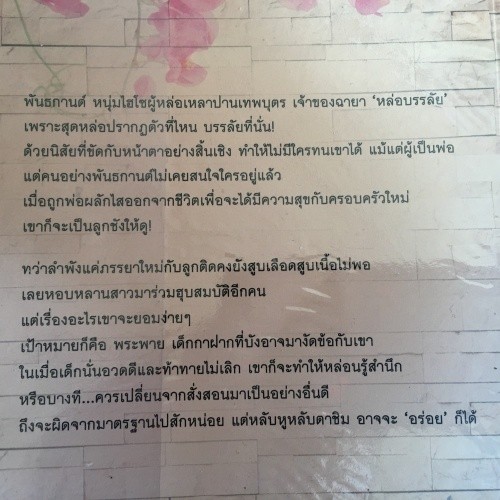 พันธกานต์ หนุ่มไฮโซผู้หล่อเหลาปานเทพบุตร เจ้าของฉายา ‘หล่อบรรลัย’
เพราะสุดหล่อปรากฏตัวที่ไหน บรรลัยที่นั่น!
ด้วยนิสัยที่ขัดกับหน้าตาอย่างสิ้นเชิง ทำให้ไม่มีใครทนเขาได้ แม้แต่ผู้เป็นพ่อ
แต่คนอย่างพันธกานต์ไม่เคยสนใจใครอยู่แล้ว
เมื่อถูกพ่อผลักไสออกจากชีวิตเพื่อจะได้มีความสุขกับครอบครัวใหม่
เขาก็จะเป็นลูกชังให้ดู!
ทว่าลำพังแค่ภรรยาใหม่กับลูกติดคงยังสูบเลือดสูบเนื้อไม่พอ
เลยหอบหลานสาวมาร่วมฮุบสมบัติอีกคน
แต่เรื่องอะไรเขาจะยอมง่ายๆ
เป้าหมายก็คือ พระพาย เด็กกาฝากที่บังอาจมางัดข้อกับเขา
ในเมื่อเด็กนั่นอวดดีและท้าทายไม่เลิก เขาก็จะทำให้หล่อนรู้สำนึก
หรือบางที...ควรเปลี่ยนจากสั่งสอนมาเป็นอย่างอื่นดี
ถึงจะผิดจากมาตรฐานไปสักหน่อย แต่หลับหูหลับตาชิม อาจจะ ‘อร่อย’ ก็ได้